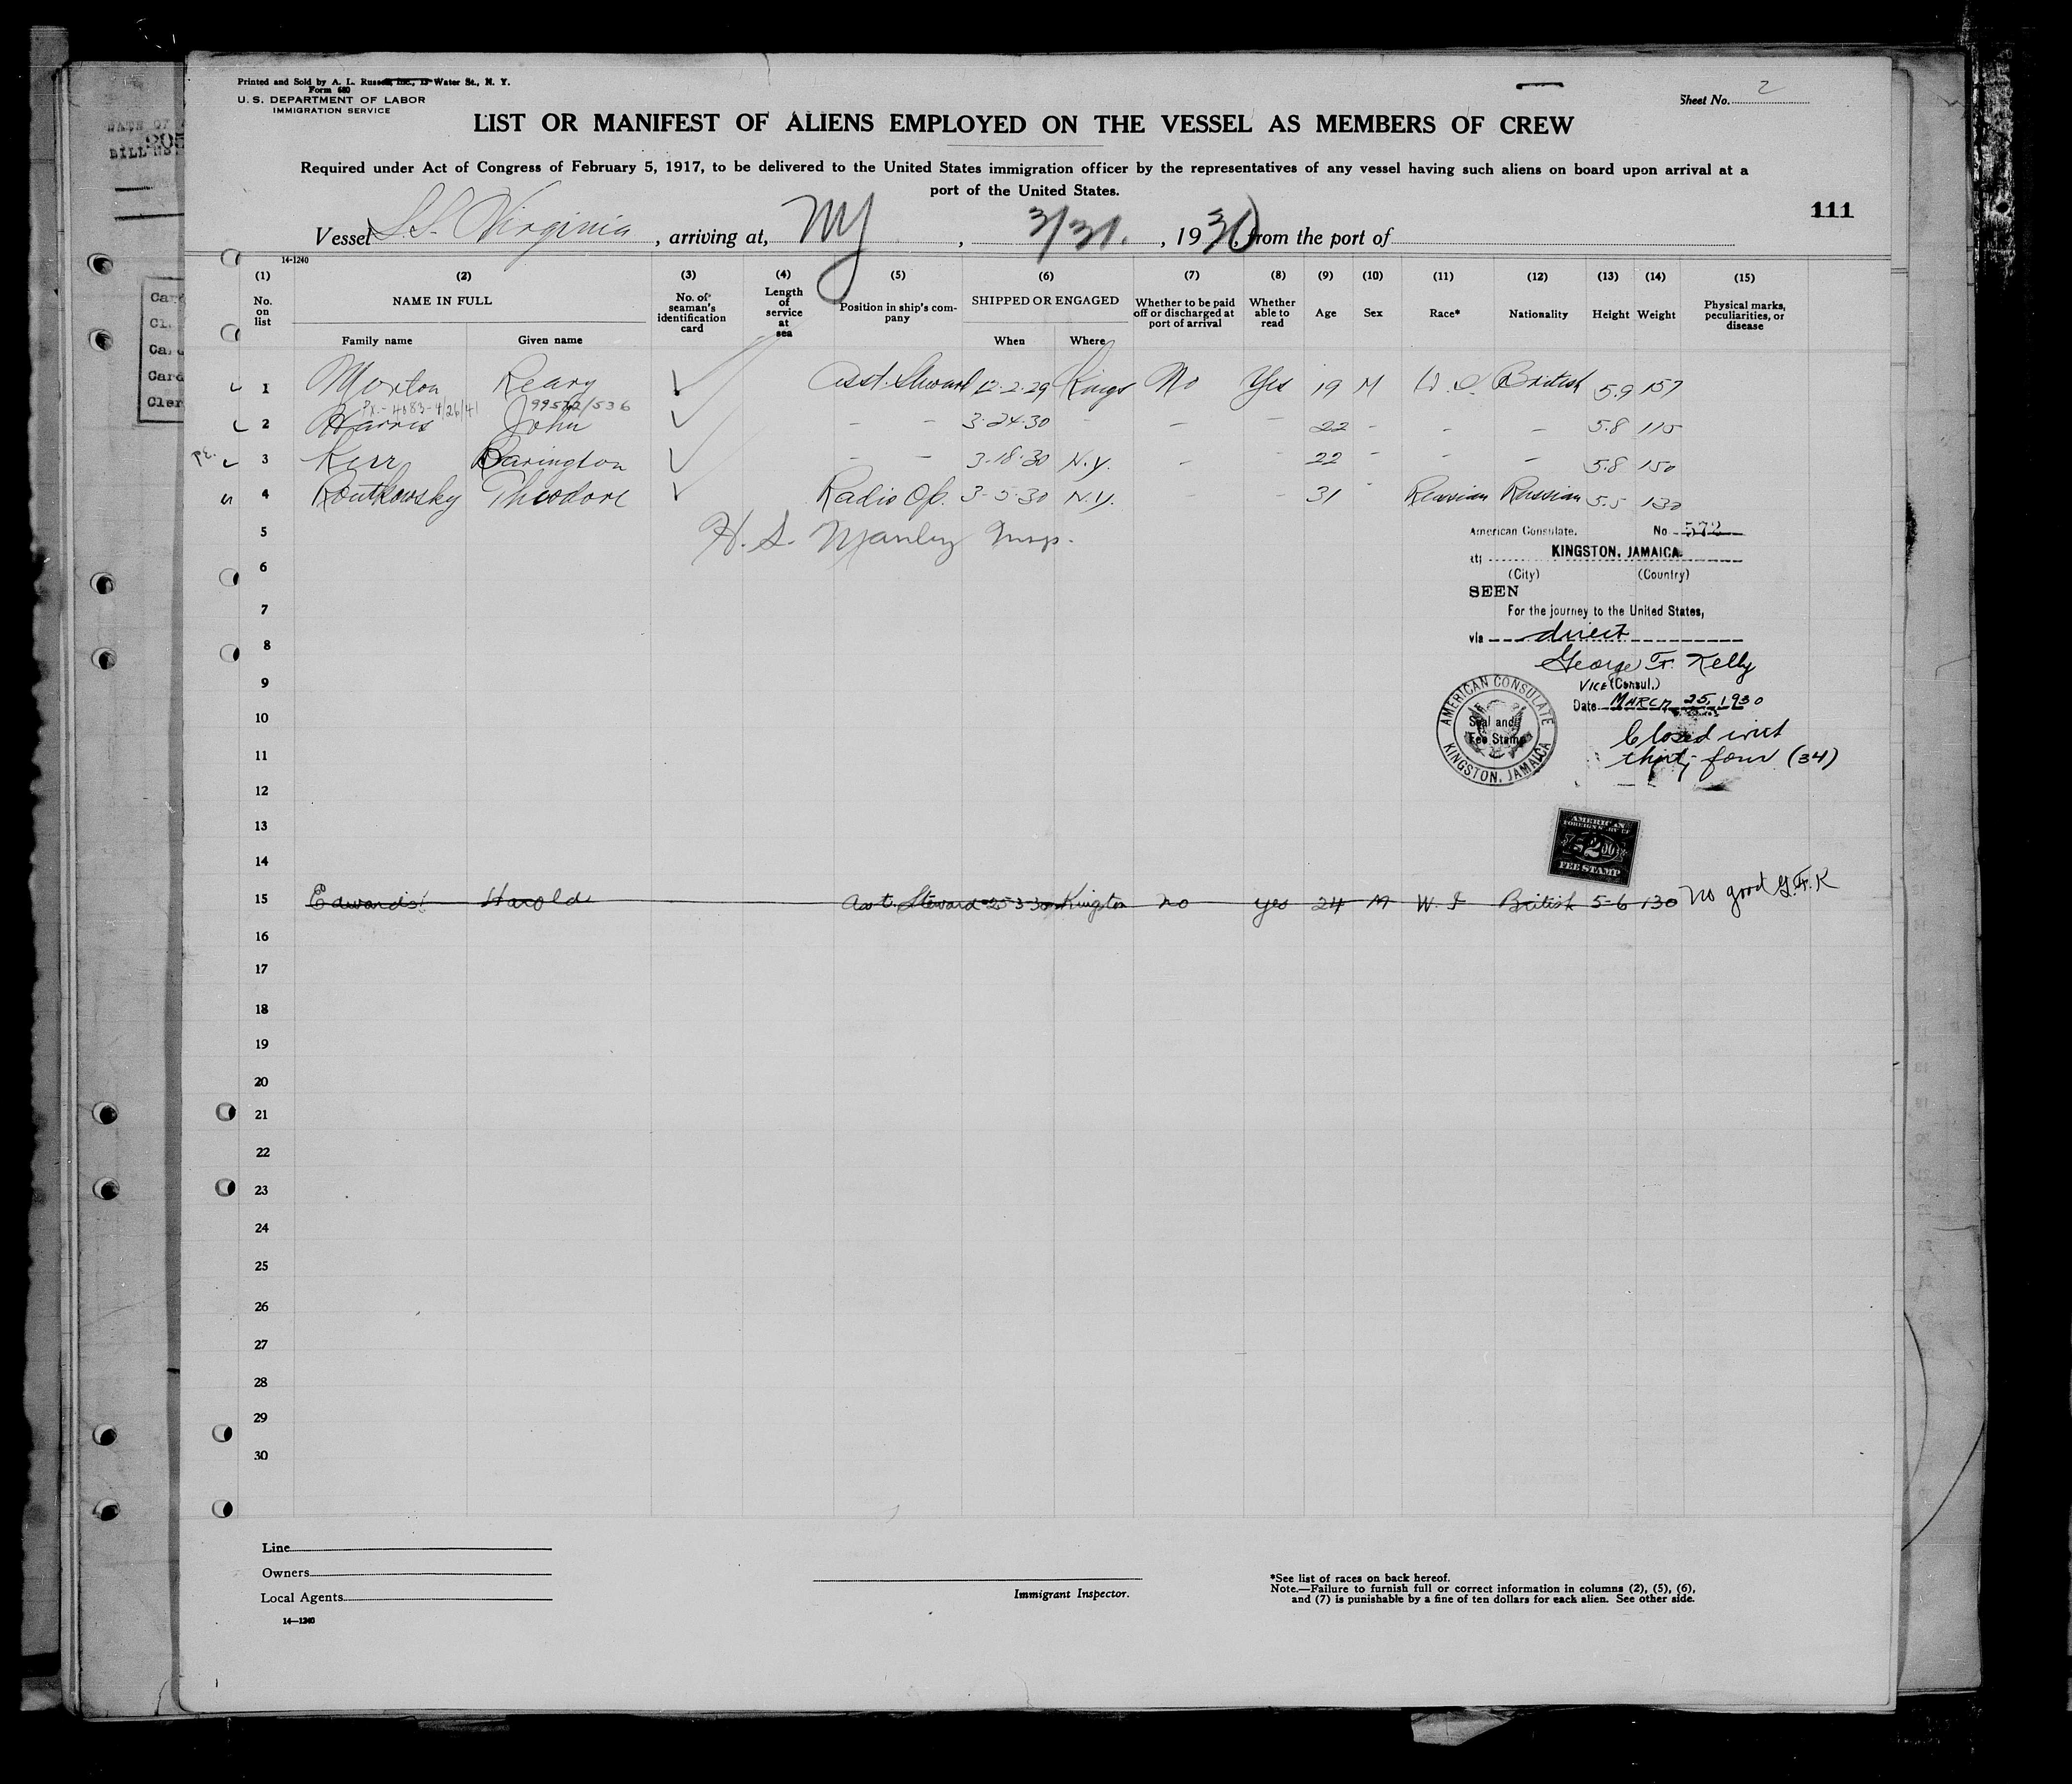 Printed and Sold by A. L. Russell, Inc., Water St., N. Y.
Form 680
U. S. DEPARTMENT OF LABOR
IMMIGRATION SERVICE
Sheet No. 2
LIST OR MANIFEST OF ALIENS EMPLOYED ON THE VESSEL AS MEMBERS OF CREW
Required under Act of Congress of February 5, 1917, to be delivered to the United States immigration officer by the representatives of any vessel having such aliens on board upon arrival at a
port of the United States.
111
Vessel S.S. Virginia, arriving at, NY, 3/31., 1930, from the port of
14-1240
(1) (2) (3) (4) (5) (6) (7) (8) (9) (10) (11) (12) (13) (14) (15)
No. on list NAME IN FULL No. of seaman's identification card Length of service at sea Position in ship's company SHIPPED OR ENGAGED Whether to be paid off or discharged at port of arrival Whether able to read Age Sex Race* Nationality Height Weight Physical marks, peculiarities, or disease
Family name Given name When Where
1 Morton Keary Asst. Steward 12-2-29 Kings No Yes 19 M W.I. British 5.9 157
PX.- 4083-4/26/41 99572/536
2 Harris John - - 3-24-30 - - 22 - - - 5.8 115
3 Kerr Barington - - 3-18-30 N.Y. - - 22 - - - 5.8 150
4 Routkowsky Theodore Radio Op. 3-5-30 N.Y. - - 31 - Russian Russian 5.5 130
5 H. S. Manley Insp.
American Consulate. No 572
at KINGSTON, JAMAICA.
6
(City) (Country)
SEEN
7 For the journey to the United States,
8 via direct
George F. Kelly
9 VICE (Consul.)
Date March 25, 1930
AMERICAN CONSULATE
KINGSTON, JAMAICA
Seal and
Fee Stamp
10
Closed
11 thirty four (34)
12
13
AMERICAN
FOREIGN SERVICE
$2.00
FEE STAMP
14
15 Edwards Harold Asst. Steward 25-3-30 Kingston no yes 24 M W. I British 5-6 130 No good G.F.K
16
17
18
19
20
21
22
23
24
25
26
27
28
29
30
Line
Owners
Local Agents
14-1240
Immigrant Inspector.
*See list of races on back hereof.
Note.—Failure to furnish full or correct information in columns (2), (5), (6),
and (7) is punishable by a fine of ten dollars for each alien. See other side.